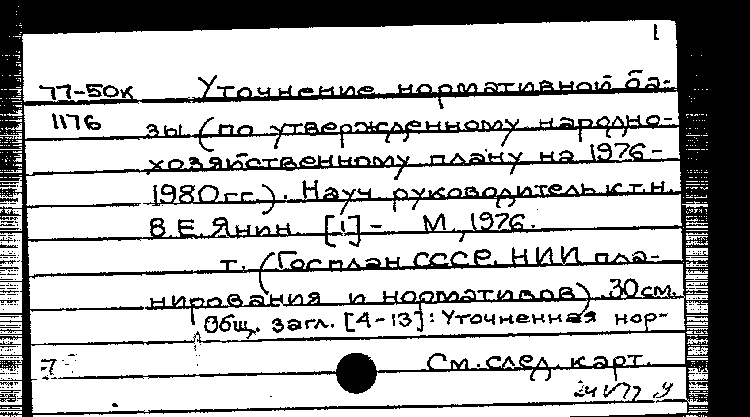 1
77-50к Уточнение нормативной ба-
1176 зы (по утвержденному народно-
хозяйственному плану на 1976-
1980 гг.). Науч. руководитель к.т.н.
В.Е. Янин. [1] - М., 1976.
т. (Госплан СССР. НИИ пла-
нирования и нормативов). 30 см.
Общ. загл. [4-13]: Уточненная нор-
См. след. карт.